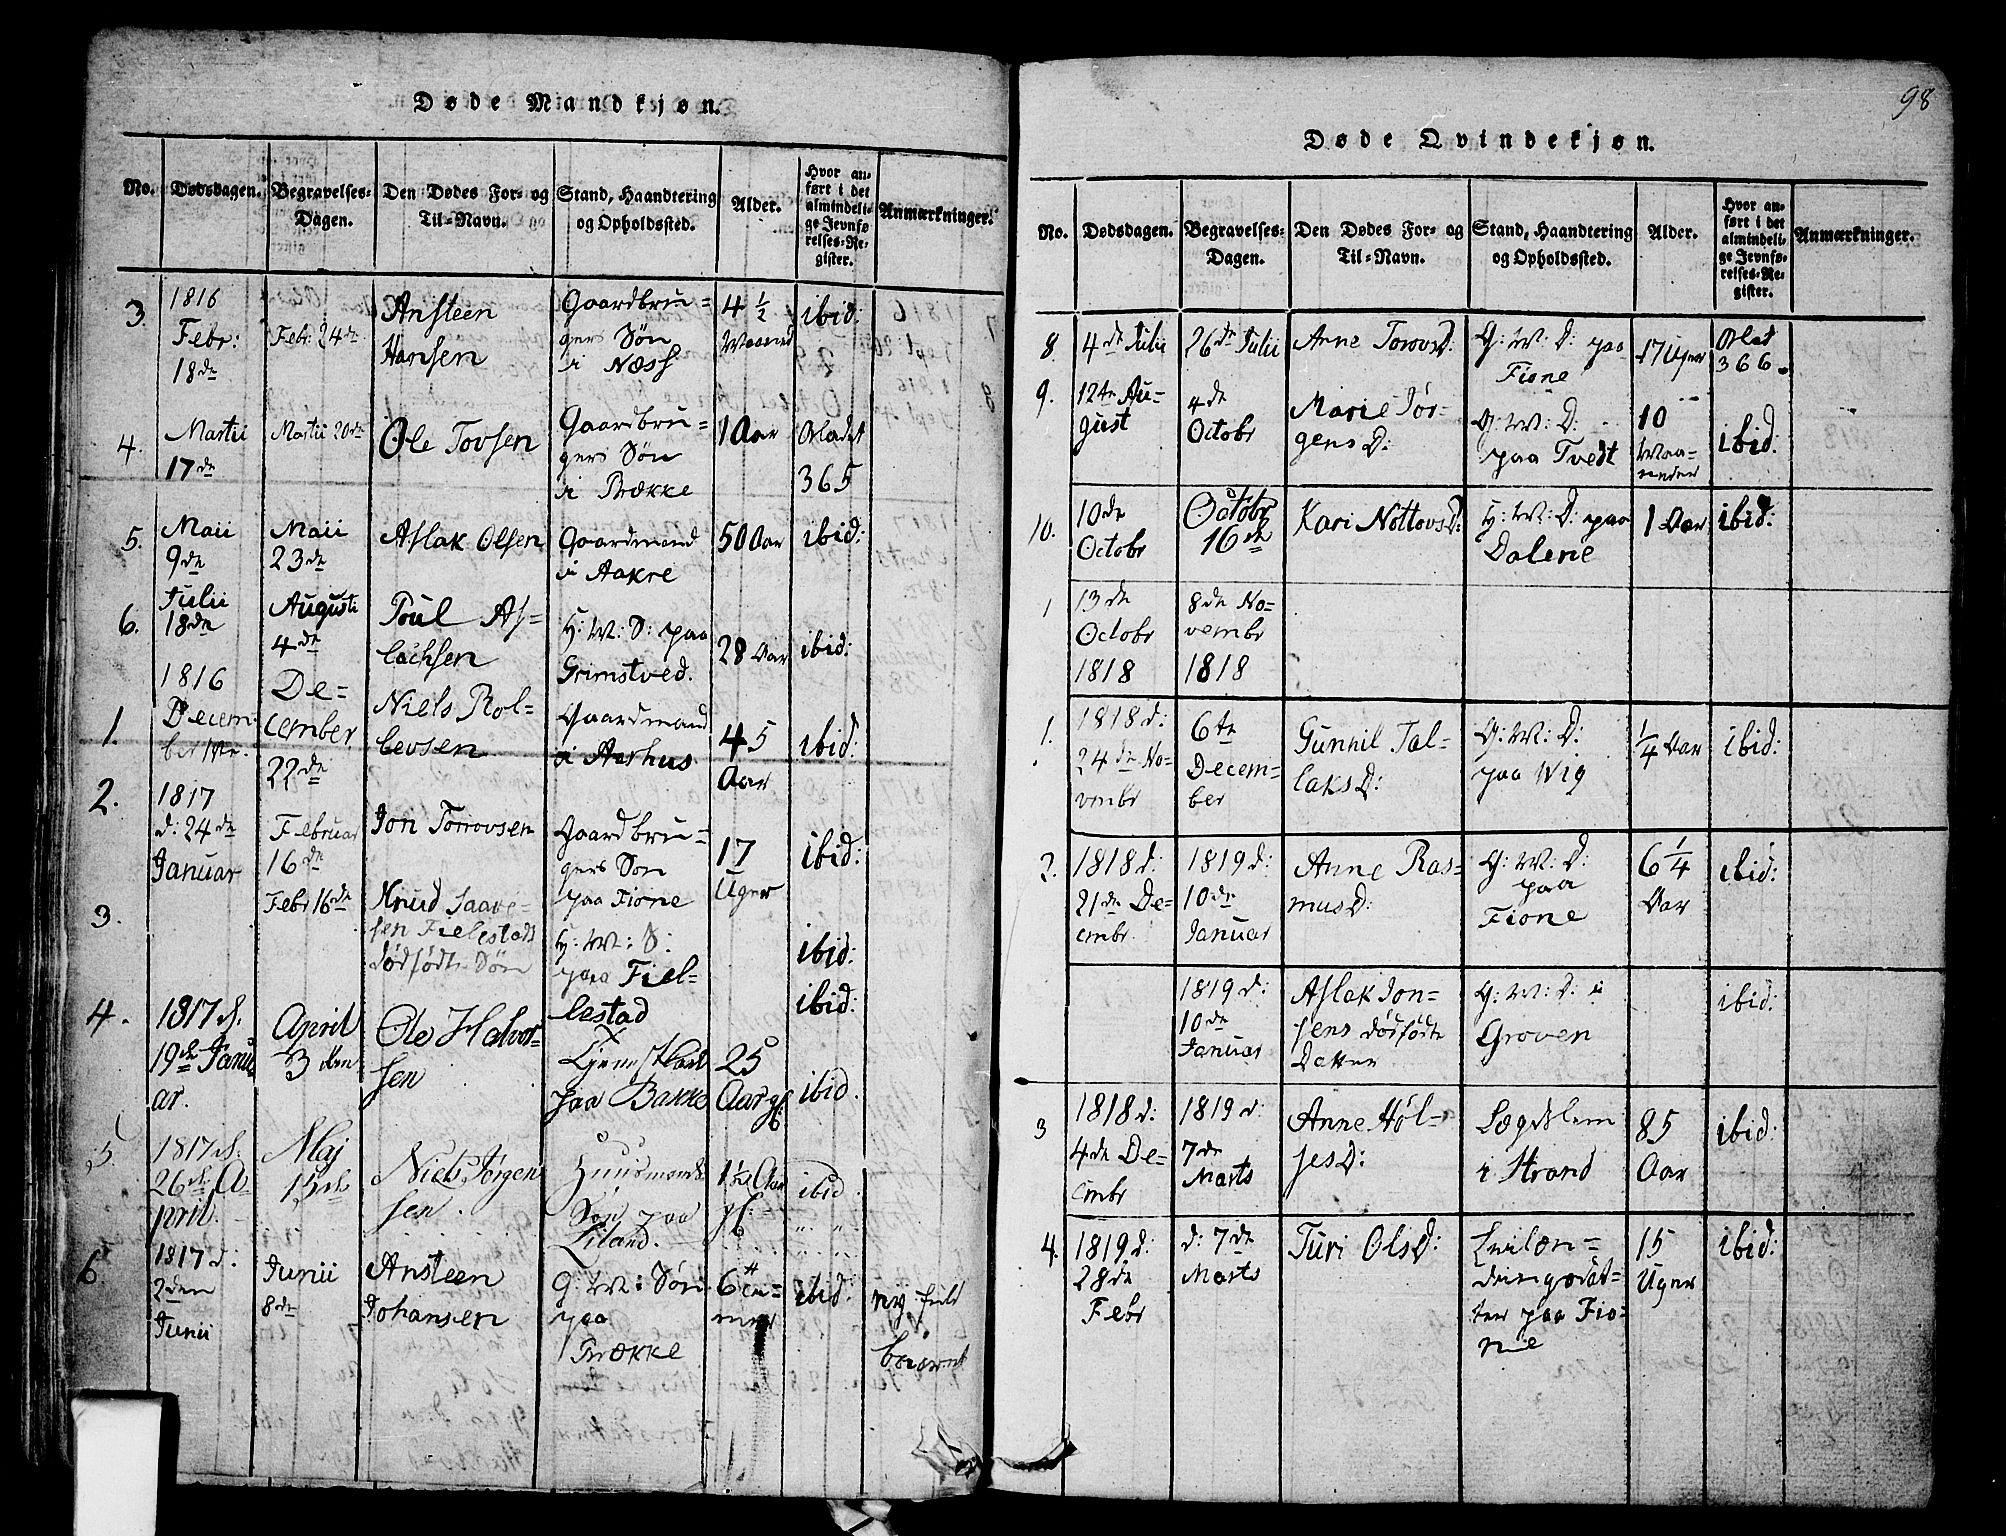 Døde Mandkjøn.
No.
Dødsdagen.
Begravelses-
Dagen.
Den Dødes For- og
Til-Navn.
Stand, Haandtering
og Opholdssted.
Alder.
Hvor an-
ført i det
almindeli-
ge Jevnfø
relses-Re-
gister.
Anmærkninger.
3.
1816
Febr:
18de
Febr: 24de
Ansteen
Hansen
Gaardbru-
gers Søn
i Næss
4 1/2
Maaned
ibid:
4.
Martii
17de
Martii 20de
Ole Tovsen
Gaardbru-
gers Søn
i Brække
1 Aar
Bladet
365
5.
Maii
9de
Maii
23de
Aslak Olsen
Gaardmand
i Aakre
50 Aar
ibid:
6.
Julii
18de
Augusti
4de
Poul As-
lachsen
H: M: S: paa
Grimstved.
28 Aar
ibid:
1.
1816
Decem-
ber
De-
cember
22de
Niels Rol-
levsen
Gaardmand
i Aarhus
45
Aar
ibid:
2.
1817
d: 24de
Januar
Februar
16de
Jon Torovsen
Gaardbru-
gers Søn
paa Fione
17
Uger
ibid:
3.
Febr 16de
Knud Saave-
sen Fielestads
dødfødte Søn
H: M: S:
paa Fiel-
lestad
ibid:
4.
1817 d.
19de Janu
ar.
April
3 den
Ole Halvor-
sen
paa Bakke
25
Aar gl:
ibid:
ibid.
5.
1817 d.
26de A
pril.
Maj
15de
Niels Jørgen
sen.
Huusmands
Søn paa
Liland.
1 1/2 Aar
gl:
ibid.
6.
1817 d:
2den
Junii
Junii
8de
Ansteen
Johansen
G: M: Søn
paa
Brække
6
ibid:
98
Døde Qvindekjøn.
No.
Dødsdagen.
Begravelses-
Dagen.
Den Dødes For- og
Til-Navn.
Stand, Haandtering
og Opholdssted.
Alder.
Hvor an-
ført i det
almindeli-
ge Jevnfø-
relses-Re-
gister.
Anmærkninger.
8.
4de Julii
26de Julii
Anne TorovsD:
G: M: D: paa
Fione
17 Uger
Blad
366.
9.
12te Au-
gust
4de
Octobr
Marie Jør-
gensD:
G: M: D:
paa Tvedt
10
Maa-
neder
ibid:
10.
10de
Octobr
Octobr
16de
Kari NottovsD:
H: M: D: paa
Dalene
1 Aar
ibid:
1
13de
Octobr
1818
8de No-
vembr
1818
1.
1818 d:
24de No-
vembr
6te
Decem-
ber
Gunhil Tal-
laksD:
G: M: D:
paa Wig
1/4 Aar
ibid:
2.
1818 d:
21de De-
cmbr.
1819 d:
10de
Januar
Anne Ras-
musD:
G: M: D:
paa
Fione
6 1/4
Aar
ibid:
1819 d:
10de
Januar
Aslak Jon-
sens dødfødte
Datter
G: M: D: i
Groven
ibid:
3
1818 d:
4de De-
cmbr
1819 d:
7de
Marts
Anne Høl-
jesD:
Lægdslem
i Strand
85
Aar
ibid:
4.
1819 d:
28de
Febr
d: 7de
Marts
Turi OlsD:
ter paa Fio-
nie
15
Uger
ibid: